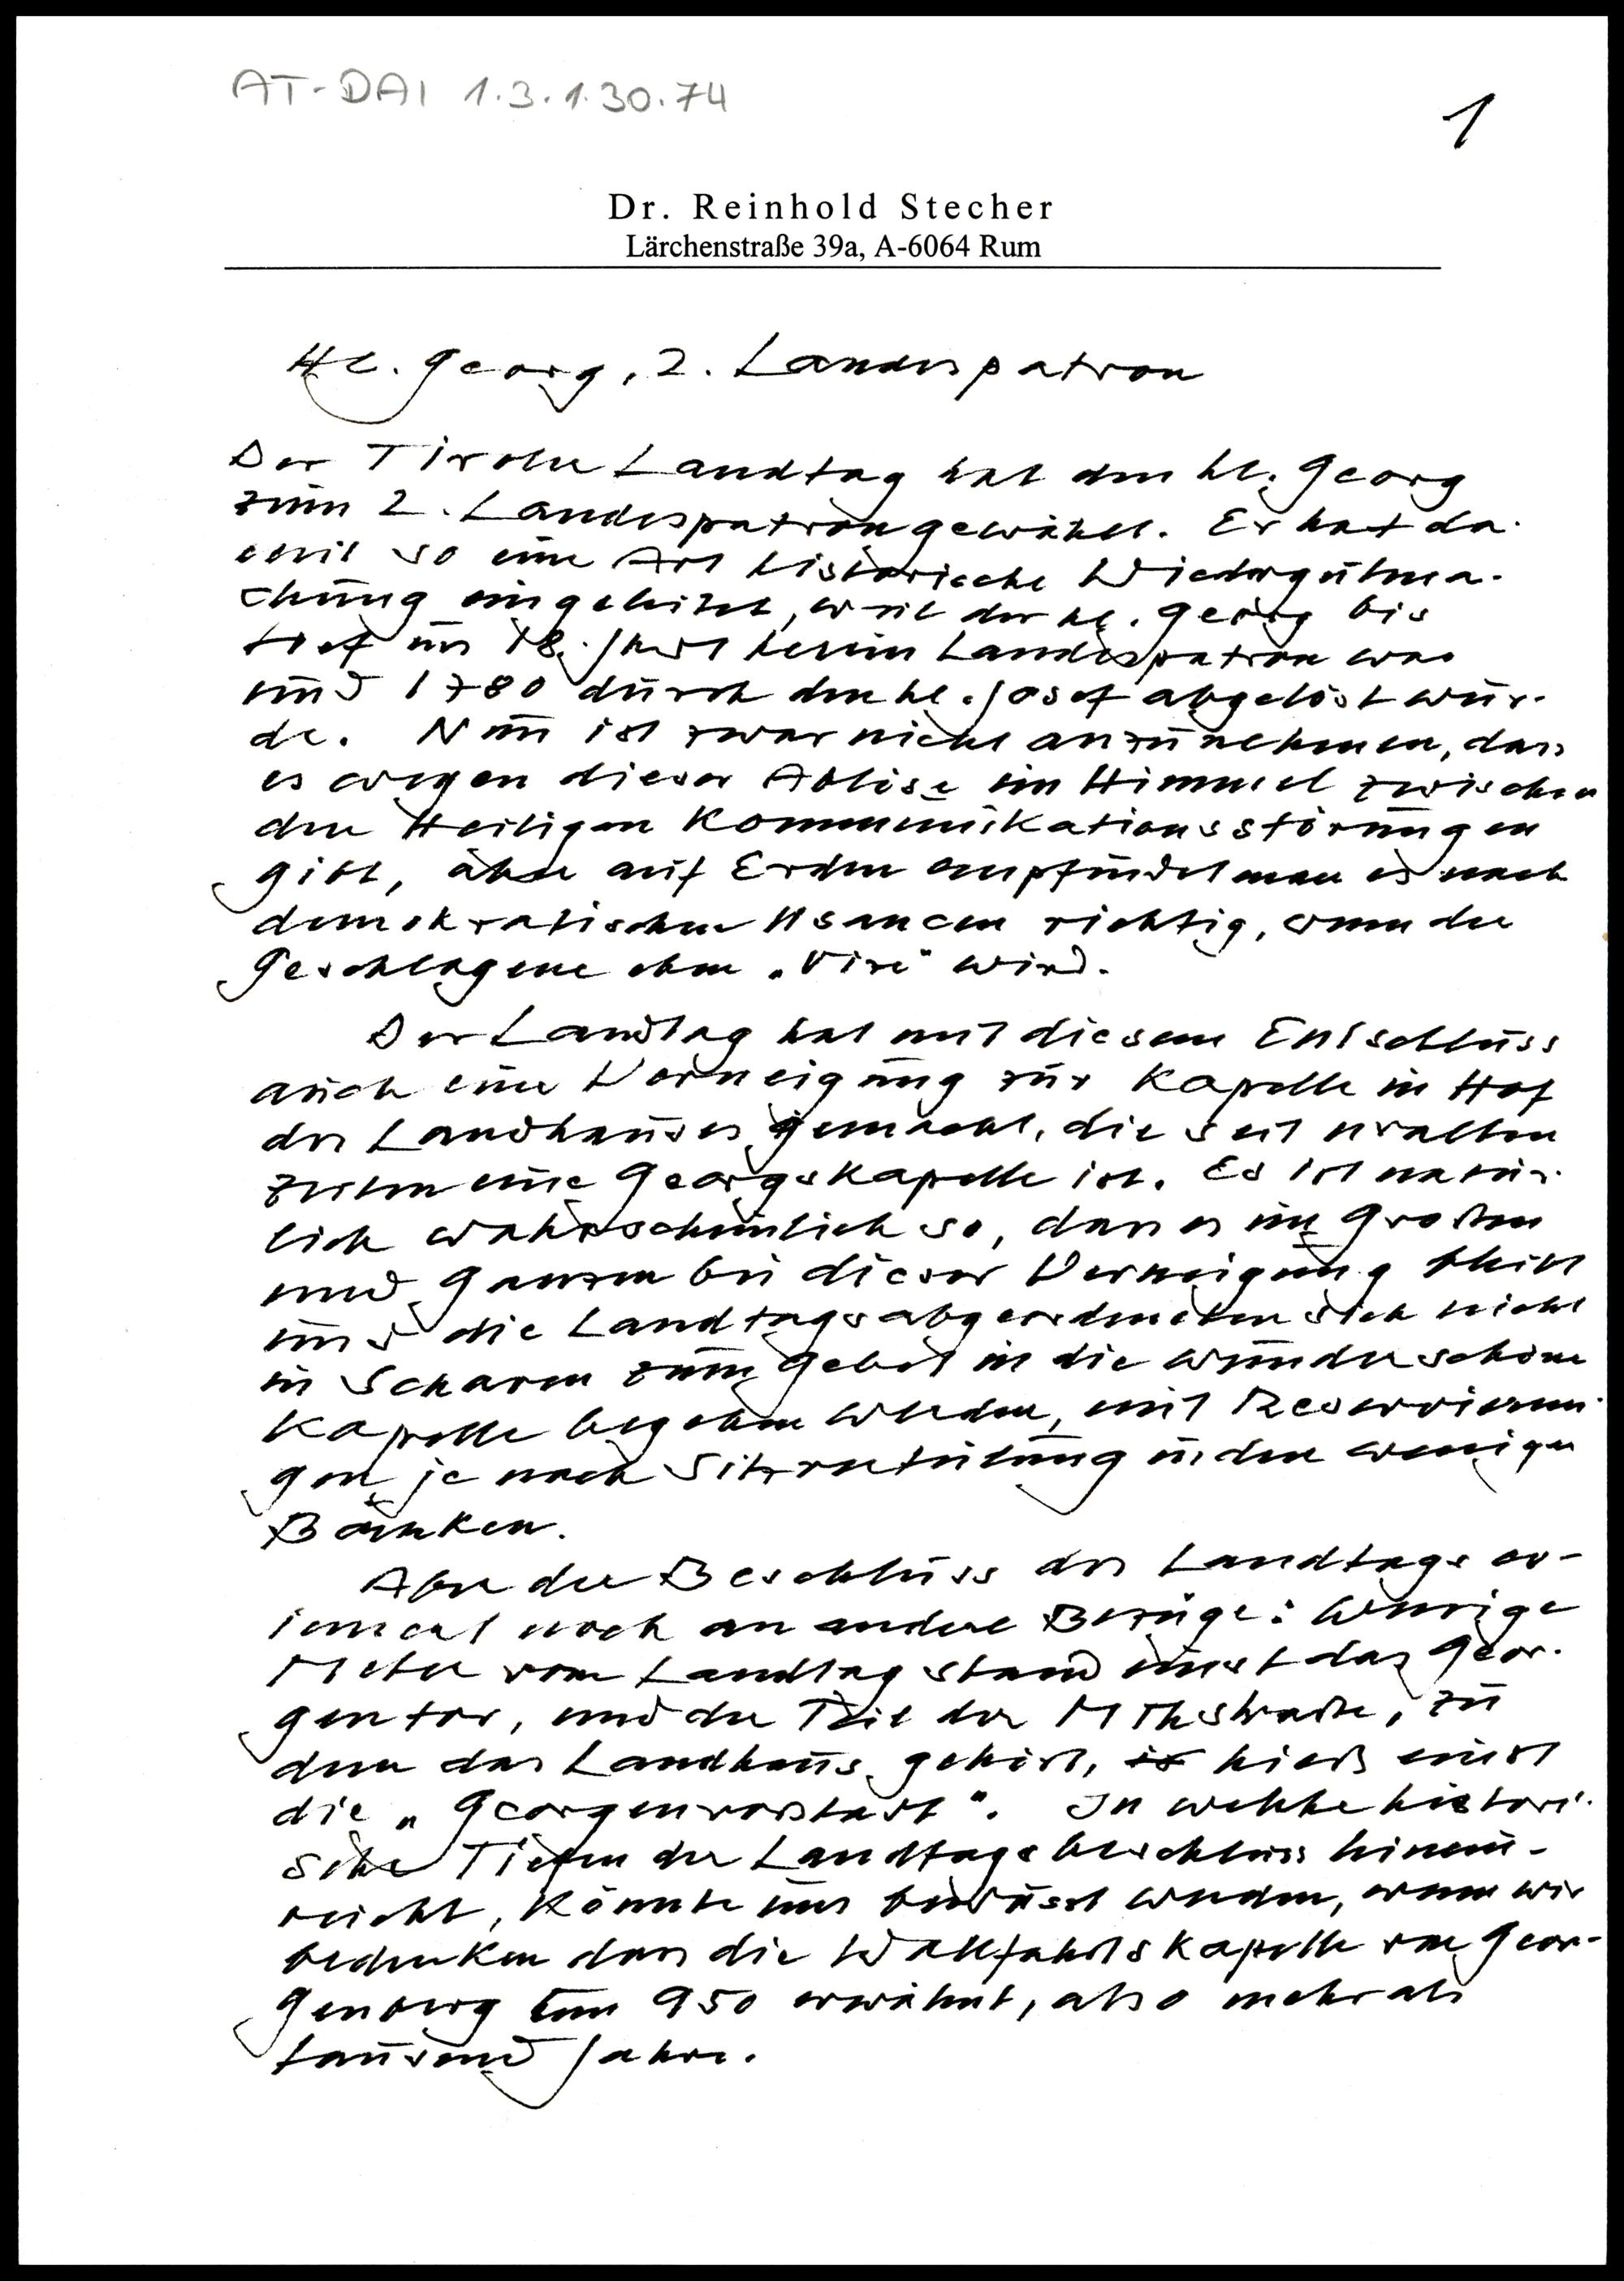 AT-DAI 1.3.1.30.74
1
Dr. Reinhold Stecher
Lärchenstraße 39a, A-6064 Rum
Hl. Georg, 2. Landespatron
Der Tiroler Landtag hat den hl. Georg
zum 2. Landespatron gewählt. Er hat da-
mit so eine Art historische Wiedergutma-
chung eingeleitet, weil der hl. Georg bis
tief ins 18. Jhdt herein Landespatron war
und 1780 durch den hl. Josef abgelöst wur-
de. Nun ist zwar nicht anzunehmen, dass
es wegen dieser Ablöse im Himmel zwischen
den Heiligen Kommunikationsstörungen
gibt, aber auf Erden empfindet man es nach
demokratischen Usancen richtig, wenn der
Geschlagene eben „Vize" wird.
Der Landtag hat mit diesem Entschluss
auch eine Verneigung zur Kapelle im Hof
des Landhauses gemacht, die seit uralten
Zeiten eine Georgskapelle ist. Es ist natür-
lich wahrscheinlich so, dass es im Großen
und Ganzen bei dieser Verneigung bleibt
und die Landtagsabgeordneten sich nicht
in Scharen zum Gebet in die wunderschöne
Kapelle begeben werden, mit Reservierun-
gen je nach Sitzverteilung in den wenigen
Bänken.
Aber der Beschluss des Landtags er-
innert noch an andere Bezüge: Wenige
Meter vom Landtag stand einst das Geor-
gentor, und der Teil der MThstraße, zu
dem das Landhaus gehört, hieß einst
die „Georgenvorstadt". In welche histori-
sche Tiefen der Landtagsbeschluss hinein-
reicht, könnte uns bewusst werden, wenn wir
bedenken dass die Wallfahrtskapelle von Geor-
genberg um 950 erwähnt, also mehr als
tausend Jahre.